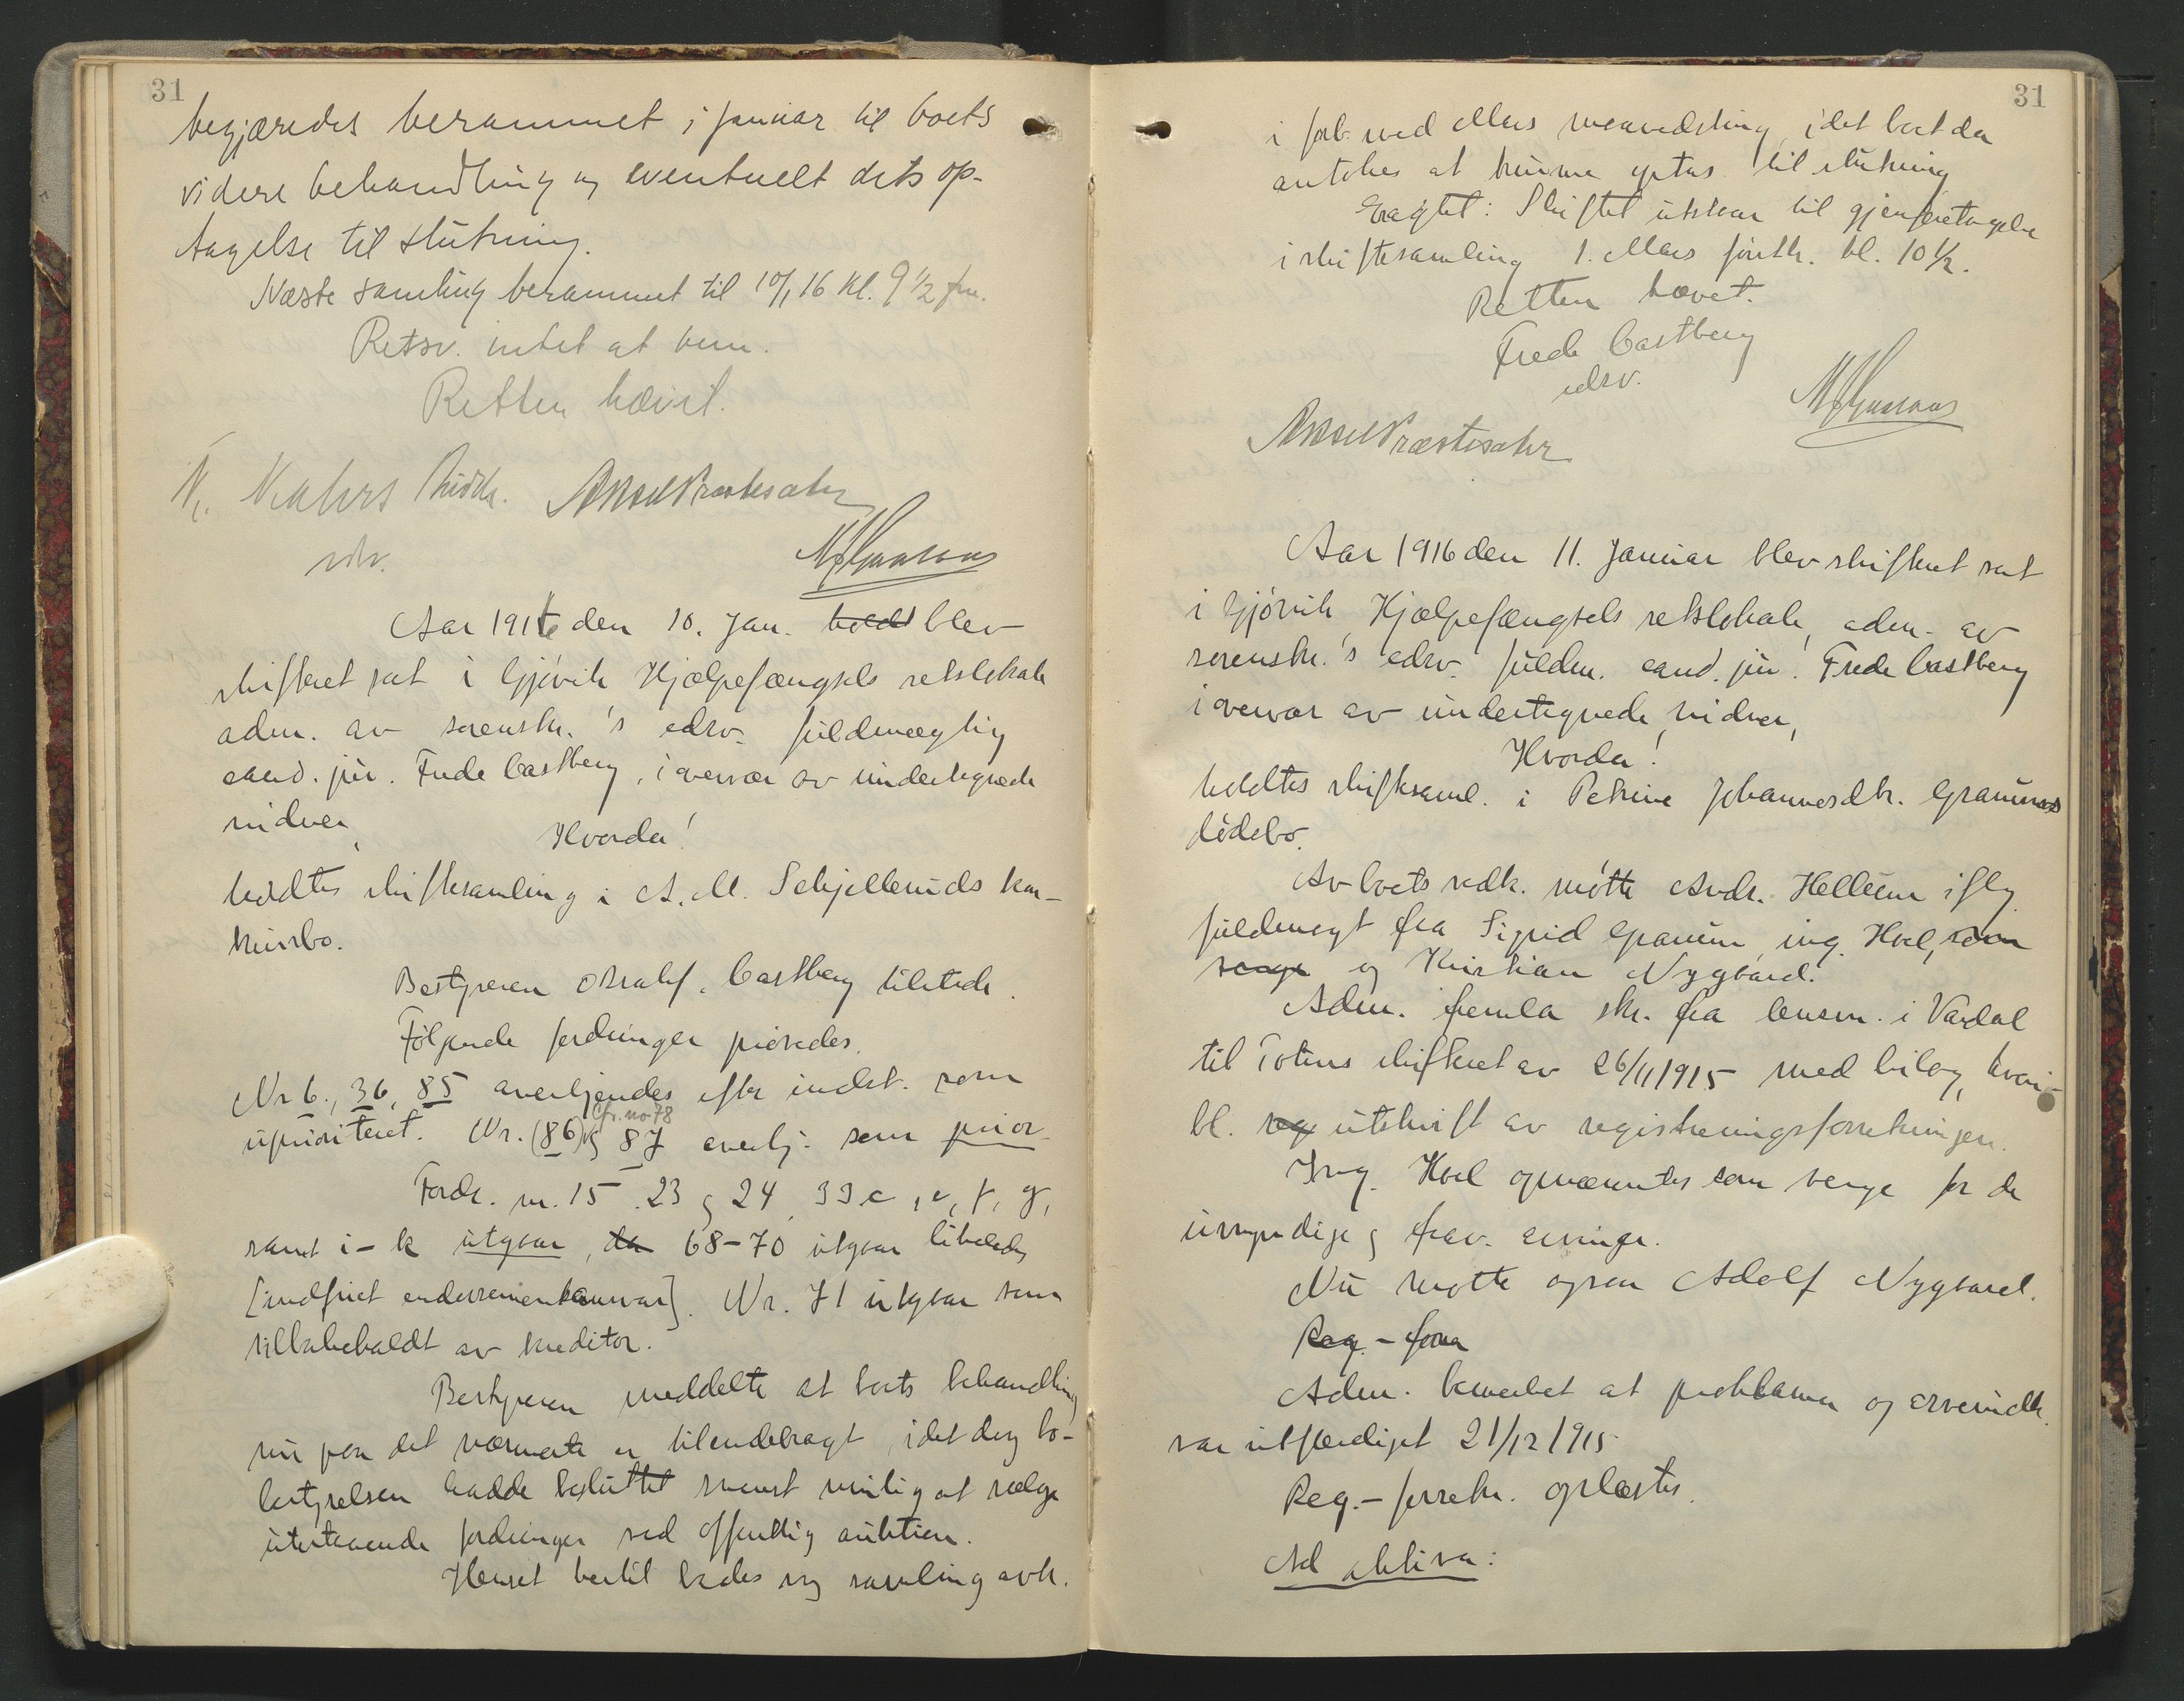 31
begjæredes berammet i januar til boets
videre behandling og eventuelt dets op-
tagelse til slutning.
Næste samling berammet til 10/1 16 kl. 9 1/2 fm.
Retsv. intet at bem.
Retten hævet.
N. Kahrs
Aksel Præstesæter
Aar 1916 den 10. Jan. holdt blev
skifteret sat i Gjøvik Hjælpefængsels retslokale
adm. av sorenskr.'s edsv. fuldmægtig
cand. jur. Frede Castberg, i overvær av undertegnede
vidner,
Hvorda!
holdtes skiftesamling i A. M. Schjelleruds kon-
kursbo.
Bestyreren o.r.sakf. Castberg tilstede.
Følgende fordringer prøvedes.
Nr 6., 36, 85 anerkjendes efter indst. som
cfr. no 78
uprioritert. Nr. (86) og 87 anerkj. som prior.
Fordr. nr. 15. 23 og 24, 33 c, e, f, g,
samt i - k utgaar, da 68-70 utgaar likeledes
[indfriet endossementansvar]. Nr. 71 utgaar som
tilbakekaldt av kreditor.
Bestyreren meddelte at boets behandling
nu paa det nærmeste er tilendebragt, idet dog bo-
bestyrelsen hadde besluttet snarest mulig at sælge
utestaaende fordringer ved offentlig auktion.
Henset hertil bedes ny samling avh.
31
i forb. med Mars maaneds ting, idet boet da
antokes at kunne optas til slutning
Eragtet: Skiftet utstaar til gjenforetagelse
i skiftesamling 1. Mars førstk. kl. 10 1/2.
Retten hævet.
Frede Castberg
edsv.
Aksel Præstesæter
Aar 1916 den 11. Januar blev skifteret sat
i Gjøvik Hjælpefængsels retslokale, adm. av
sorenskr.'s edsv. fuldm. cand. jur. Frede Castberg
i overvær av undertegnede vidner,
Hvorda!
holdtes skiftesaml. i Petrine Johannesdtr. Granums
dødebo.
Av boets vedk. møtte Andr. Hellum ifølg
fuldmagt fra Sigrid Granum, ing. Hoel, som
verge og Kristian Nygaard.
Adm. fremla skr. fra lensm. i Vardal
til Totens skifteret av 26/11 1915 med bilag, hvori-
bl. reg utskrift av registreringsforretningen.
Ing. Hoel opnævntes som verge for de
umyndige og frav. arvinger.
Nu møtte ogsaa Adolf Nygaard.
Reg. - forr
Adm. bemerket at proklama og arveindk.
var utfærdiget 21/12 1915
Reg.- forretn. oplæstes.
Ad aktiva: